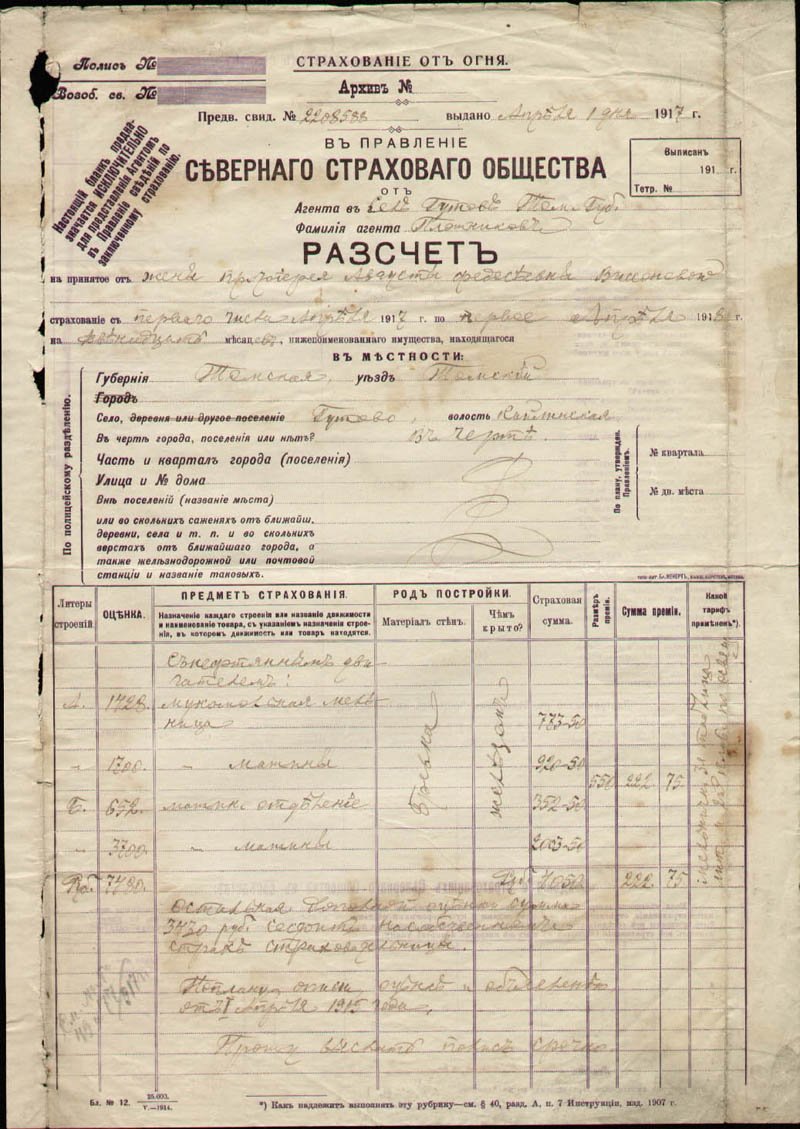 СТРАХОВАНІЕ ОТЪ ОГНЯ.
Полисъ №
Возоб. св. №
Архивъ №
Предв. свид. № 2208588 выдано Апрѣля 1 дня 1917 г.
Настоящій бланкъ предна-
значается ИСКЛЮЧИТЕЛЬНО
для представленія Агентомъ
въ Правленіе свѣдѣній по
заключенному страхованію.
ВЪ ПРАВЛЕНІЕ
СѢВЕРНАГО СТРАХОВАГО ОБЩЕСТВА
Выписанъ
191 г.
Тетр. №
ОТЪ
Агента въ Селѣ Гутовѣ Том. Губ.
Фамилія агента Плотниковъ
РАЗСЧЕТЪ
на принятое отъ жены Августы
страхованіе съ перваго числа Апрѣля 1917 г. по первое Апрѣля 1918 г.
на двѣнадцать мѣсяцевъ, нижепоименованнаго имущества, находящагося
ВЪ МѢСТНОСТИ:
По полицейскому раздѣленію.
Губернія Томская, уѣздъ Томскій
Городъ
Село, деревня или другое поселеніе Гутово, волость
Въ чертѣ города, поселенія или нѣтъ? Въ чертѣ.
Часть и кварталъ города (поселенія)
Улица и № дома
Внѣ поселеній (названіе мѣста)
или во сколькихъ саженяхъ отъ ближайш.
деревни, села и т. п. и во сколькихъ
верстахъ отъ ближайшаго города, а
также желѣзнодорожной или почтовой
станціи и названіе таковыхъ.
По плану, утвержден. Правленіемъ.
№ квартала
№ дв. мѣста
Литеры строеній.
ОЦѢНКА.
ПРЕДМЕТЪ СТРАХОВАНІЯ.
Назначеніе каждаго строенія или названіе движимости
и наименованіе товара, съ указаніемъ назначенія строе-
нія, въ которомъ движимость или товаръ находятся.
РОДЪ ПОСТРОЙКИ.
Матеріалъ стѣнъ.
Чѣмъ крыто?
Страховая сумма.
Размѣръ преміи.
Сумма преміи.
Какой тарифъ примѣненъ*).
Съ нефтянымъ дви-
гателемъ:
А. 1728. мукомольная мель-
ница 773-50
" 1700. " машины 920-50
550 222 75
Б. 652. машин. отдѣленіе 352-50
" 3700. " машины 2003-50
Руб. 7780. Руб. 4050 222 75
3730 руб.
страхѣ страховательницы.
отъ 1 Апрѣля 1915 года.
Прошу выслать полисъ срочно.
Бл. № 12. 25.000. V.—1914.
*) Какъ надлежитъ выполнять эту рубрику—см. § 40, разд. А, п. 7 Инструкціи, изд. 1907 г.